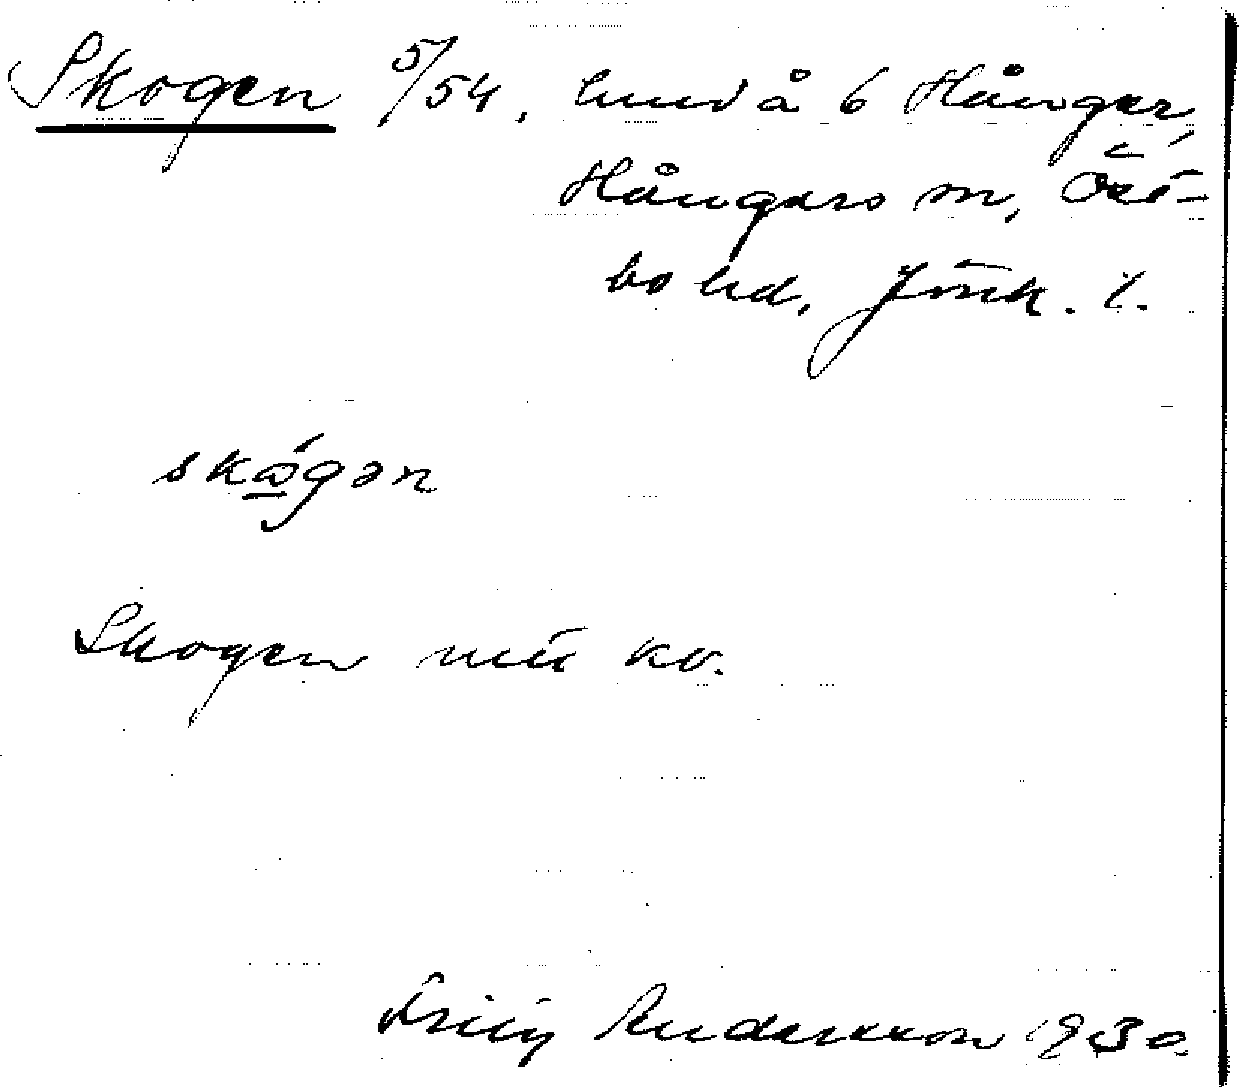 Skogen 5/54, hmd å 6 Hånger,
Hångers sn, Öst-
bo hd, Jönk. l.
skógən
Skogen mtt ko.
Fritz Andersson 1930.